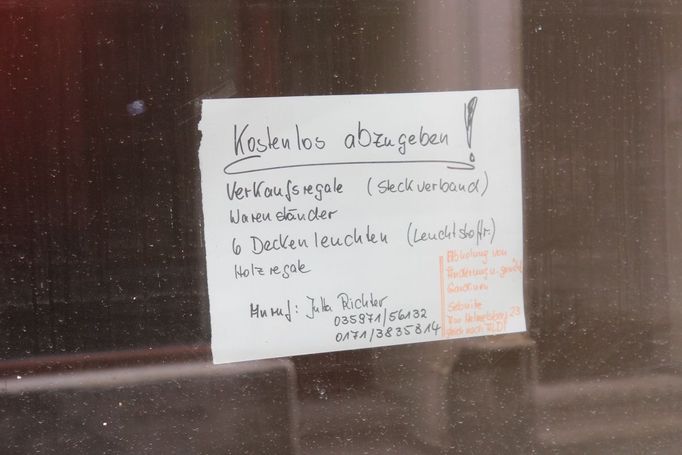 Kostenlos abzugeben!
Verkaufsregale (Steckverband)
Warenständer
6 Deckenleuchten (Leuchtstoffr.)
Holzregale
Anruf: Jutta Richter
035971/56132
0171/3835814
Abholung von
Änderung u.
Sebnitz
23